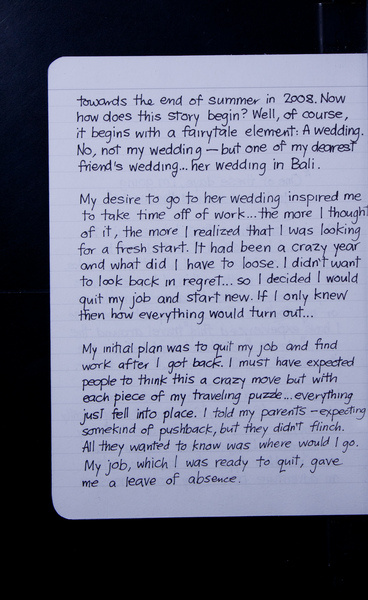 towards the end of summer in 2008. Now
how does this story begin? Well, of course,
it begins with a fairytale element: A wedding.
No, not my wedding — but one of my dearest
friend's wedding... her wedding in Bali.
My desire to go to her wedding inspired me
to take time off of work... the more I thought
of it, the more I realized that I was looking
for a fresh start. It had been a crazy year
and what did I have to loose. I didn't want
to look back in regret... so I decided I would
quit my job and start new. If I only knew
then how everything would turn out...
My initial plan was to quit my job and find
work after I got back. I must have expected
people to think this a crazy move but with
each piece of my traveling puzzle... everything
just fell into place. I told my parents — expecting
somekind of pushback, but they didn't flinch.
All they wanted to know was where would I go.
My job, which I was ready to quit, gave
me a leave of absence.